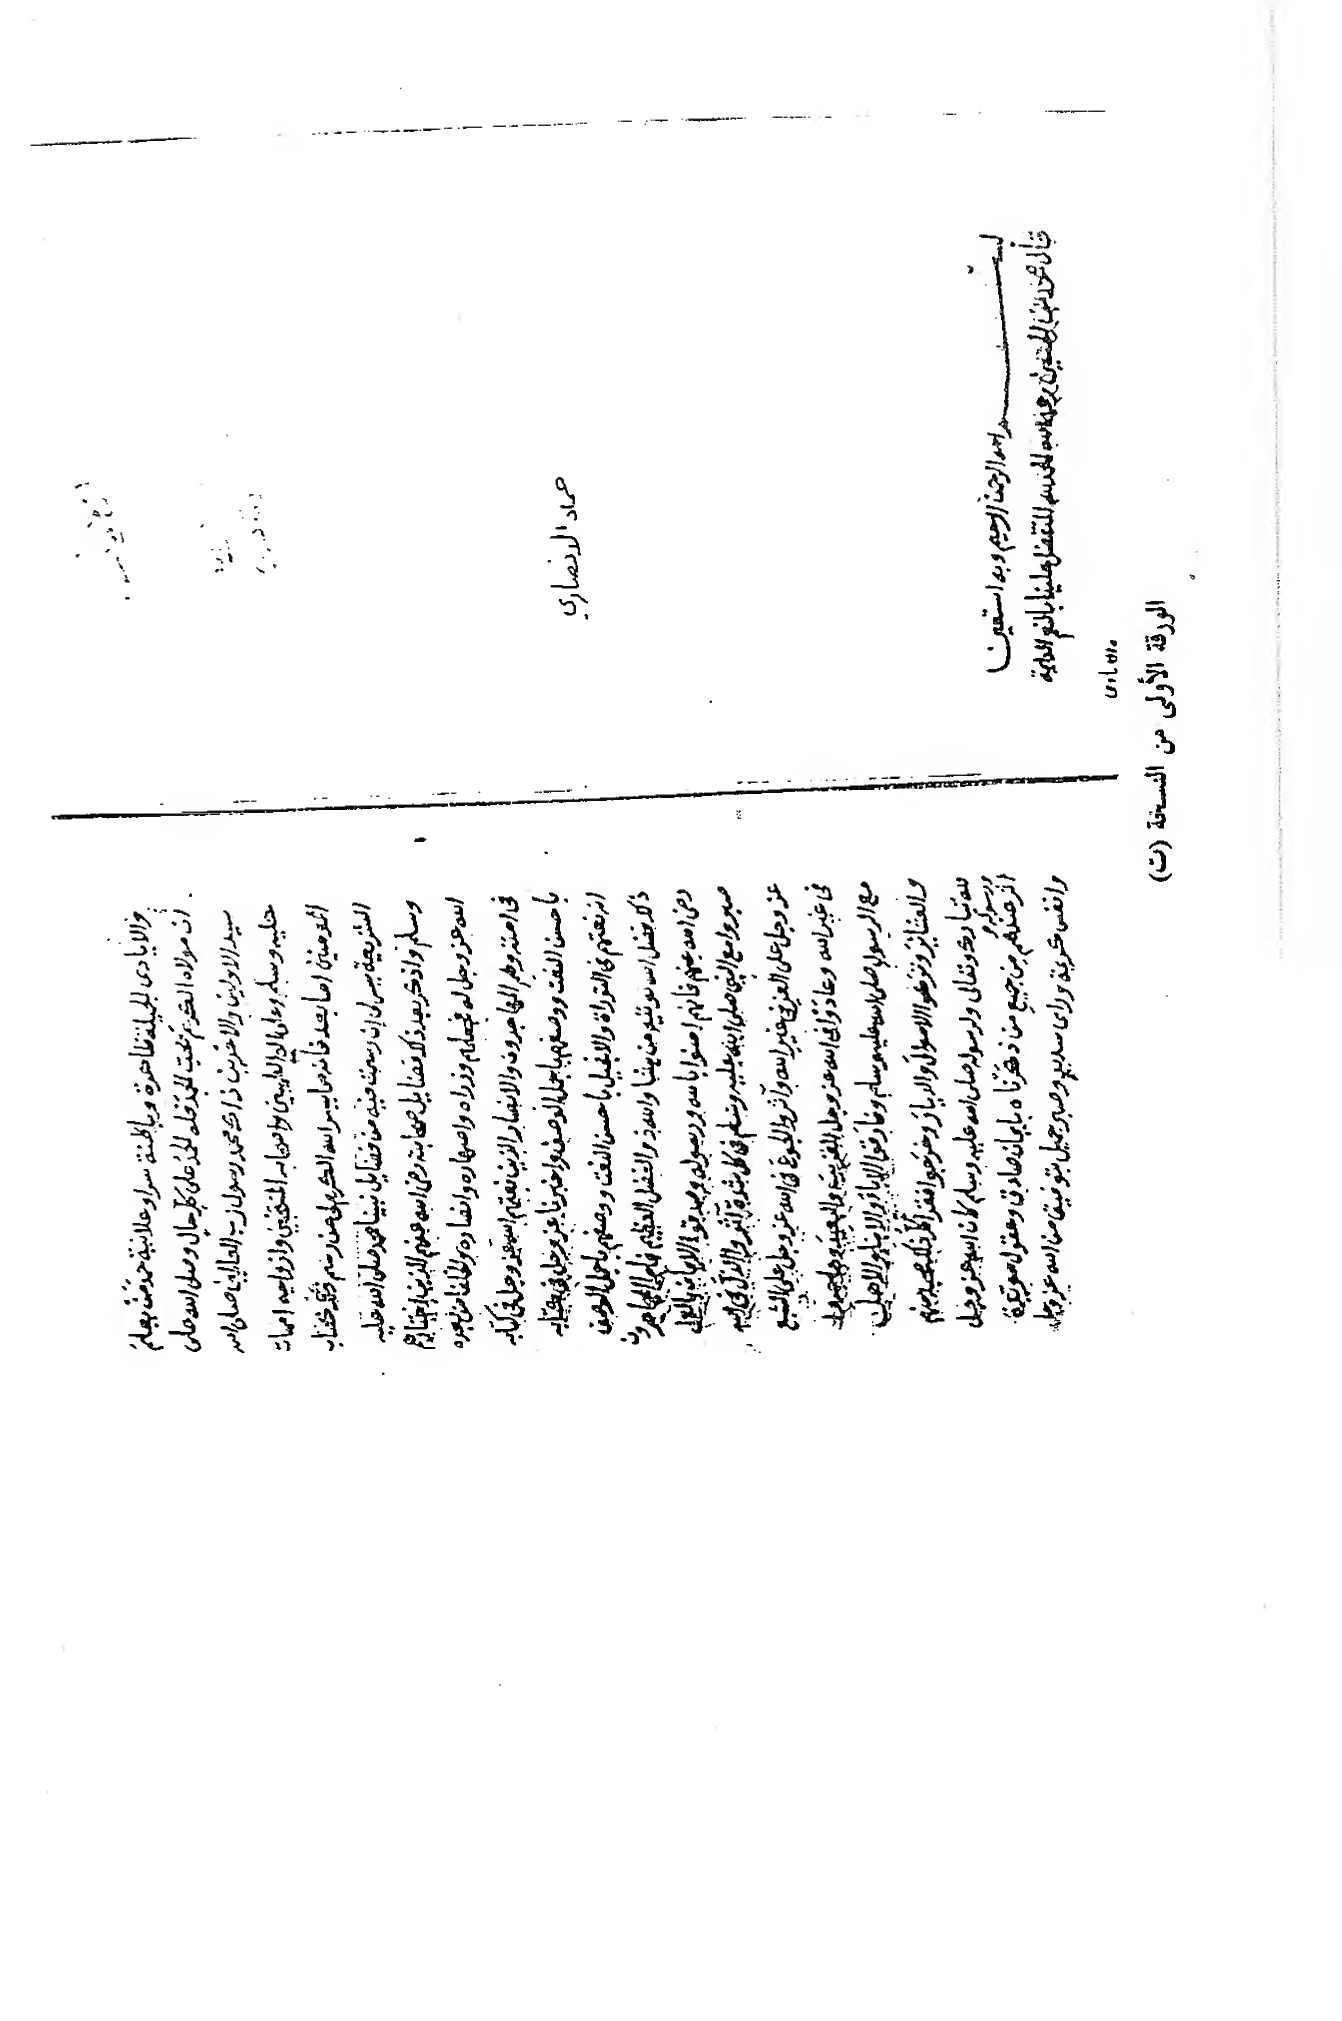 حماد الانصاري
بسم الله الرحمن الرحيم وبه استعين
المتقين رحمة الله الحمد لله المتفضل علينا بالنعم الدايمة
والايادي الجميلة ظاهرة وباطنة سرا وعلانية حمد من يعلم
ان مولاه الكريم يحب الحمد فله الحمد على كل حال وصلى الله على
سيد الاولين والاخرين ذاك محمد رسول رب العالمين صلى الله
عليه وسلم وعلى اله الطيبين واصحابه المنتخبين وازواجه امهات
المومنين اما بعد فانه مما يسر الله الكريم لي من رسم كتاب
الشريعة يسر لي ان رسمت فيه من فضايل نبينا محمد صلى الله عليه
وسلم واذكر بعد ذلك فضايل صحابته رضي الله عنهم الذين اختارهم
الله عز وجل له فجعلهم وزراه واصهاره وانصاره والخلفا من بعده
في امته وهم المهاجرون والانصار الذين نعتهم الله عز وجل في كتابه
باحسن النعت ووصفهم باجمل الوصف واخبرنا عز وجل في كتابه
انه نعتهم في التوراة والانجيل باحسن النعت ووصفهم باجمل الوصف
ذلك فضل الله يوتيه من يشا والله ذو الفضل العظيم فاما المهاجرون
رضي الله عنهم فانهم امنوا بالله وبرسوله وصدقوا الايمان بالعمل
صبروا مع النبي صلى الله عليه وسلم في كل شدة آثروا الذل في الله
عز وجل على العز في غير الله وآثروا الجوع في الله عز وجل على الشبع
في غير الله وعادوا في الله عز وجل القريب والبعيد وهاجروا
مع الرسول صلى الله عليه وسلم وفارقوا الاباء والابناء والاهل
والعشاير وتركوا الاموال والديار وخرجوا فقرا كل ذلك محبة منهم
لله تبارك وتعالى ولرسوله صلى الله عليه وسلم كان الله عز وجل
ورسوله
اثر عندهم من جميع من ذكرناه بايمان صادق وعقول مويدة
وانفس كريمة وراي سديد وصبر جميل بتوفيق من الله عز وجل
والايادي
الورقة الأولى من النسخة (ت)